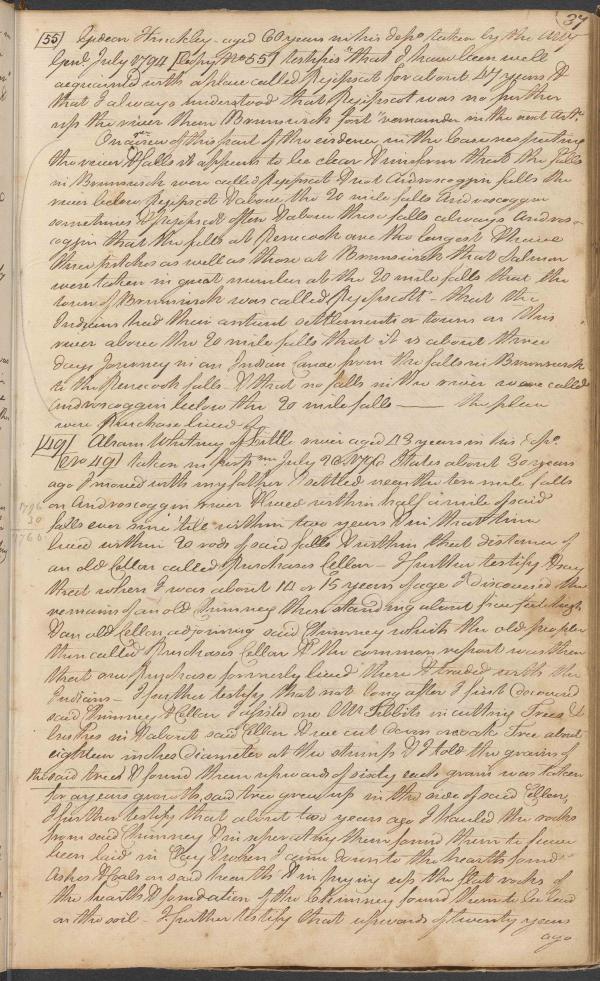 37
[55] Gideon Hinckley aged 60 years in his depo. taken by the Atty
Genl July 1794 [Copy No 55] testifies "that I have been well
acquainted with a place called Pejipscot for about 47 years &
that I always understood that Pejipscot was no further
up the river than Brunswick Fort" remainder in the next
On a view of this part of the evidence in the case respecting
the river & falls it appears to be clear & uniform that the falls
in Brunswick were called Pejipscot & not Androscoggin falls the
river below Pejipscot & above the 20 mile falls Androscoggin
sometimes & Pejipscot often & above these falls always Andros-
coggin that the falls at Penecook are the largest & have
three pitches as well as those at Brunswick that Salmon
were taken in great number at the 20 mile falls that the
town of Brunswick was called Pejipscott - that the
Indians had their antient settlements or towns on this
river above the 20 mile falls that it is about three
days Journey in an Indian Canoe from the falls in Brunswick
to the Penecook falls & that no falls in the river were called
Androscoggin below the 20 mile falls — the place
were Purchase lived
[49] Abram Whitney of Little river aged 43 years in his depo.
[No 49] taken in July 1796 States about 30 years
ago I moved with my father & settled near the ten mile falls
on Androscoggin river & lived within half a mile of said
falls ever since 'till within two years & in that time
lived within 20 rods of said falls & within that distance of
an old Cellar called Purchases Cellar - I further testify & say
that when I was about 14 or 15 years of age I discovered the
remains of an old Chimney then standing about five feet high
& an old Cellar adjoining said Chimney which the old people
then called Purchases Cellar & the common report was then
that one Purchase formerly lived there & traded with the
Indians - I further testify that not long after I first discovered
said Chimney & Cellar I assisted one Mr Tibbits in cutting Trees &
bushes in & about said Cellar & we cut down an oak Tree about
eighteen inches Diameter at the stump & I told the grains of
the said tree & found them upwards of sixty each grain was taken
for a years growth, said tree grew up in the side of said Cellar,
I further testify that about two years ago I hauled the rocks
from said Chimney & in seperating them found them to have
been laid in Clay & when I came down to the hearth found
Ashes & Coals on said hearth & in prying up the flat rocks of
the hearth & foundation of the Chimney found them to be laid
on the soil - I further testify that upwards of twenty years
ago
1796
30
1766